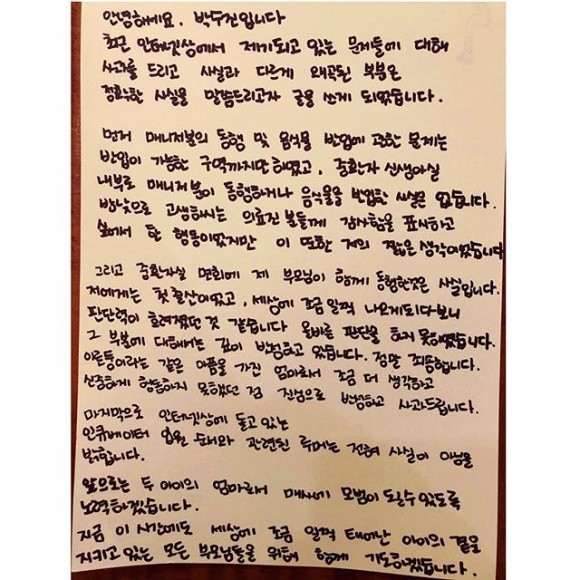 안녕하세요. 박수진입니다
최근 인터넷상에서 제기되고 있는 문제들에 대해
사과를 드리고 사실과 다르게 왜곡된 부분은
정확한 사실을 말씀드리고자 글을 쓰게 되었습니다.
먼저 매니저분의 동행 및 음식물 반입에 관한 문제는
반입이 가능한 구역까지만 하였고, 중환자 신생아실
내부로 매니저분이 동행하거나 음식물을 반입한 사실은 없습니다.
밤낮으로 고생하시는 의료진분들께 감사함을 표시하고
싶어서 한 행동이었지만 이 또한 저의 짧은 생각이었습니다
그리고 중환자실 면회에 제 부모님이 함께 동행한것은 사실입니다.
저에게는 첫 출산이었고, 세상에 조금 일찍 나오게되다보니
판단력이 흐려졌던 것 같습니다 올바른 판단을 하지 못하였습니다.
그 부분에 대해서는 깊이 반성하고 있습니다. 정말 죄송합니다.
이른둥이라는 같은 아픔을 가진 엄마로서 조금 더 생각하고
신중하게 행동하지 못했던 점 진심으로 반성하고 사과드립니다.
마지막으로 인터넷상에 돌고있는
인큐베이터 입원 순서와 관련된 루머는 전혀 사실이 아님을
밝힙니다.
앞으로는 두 아이의 엄마로서 매사에 모범이 될수 있도록
노력하겠습니다.
지금 이 시간에도 세상에 조금 일찍 태어난 아이의 곁을
지키고 있는 모든 부모님들을 위해 함께 기도하겠습니다.